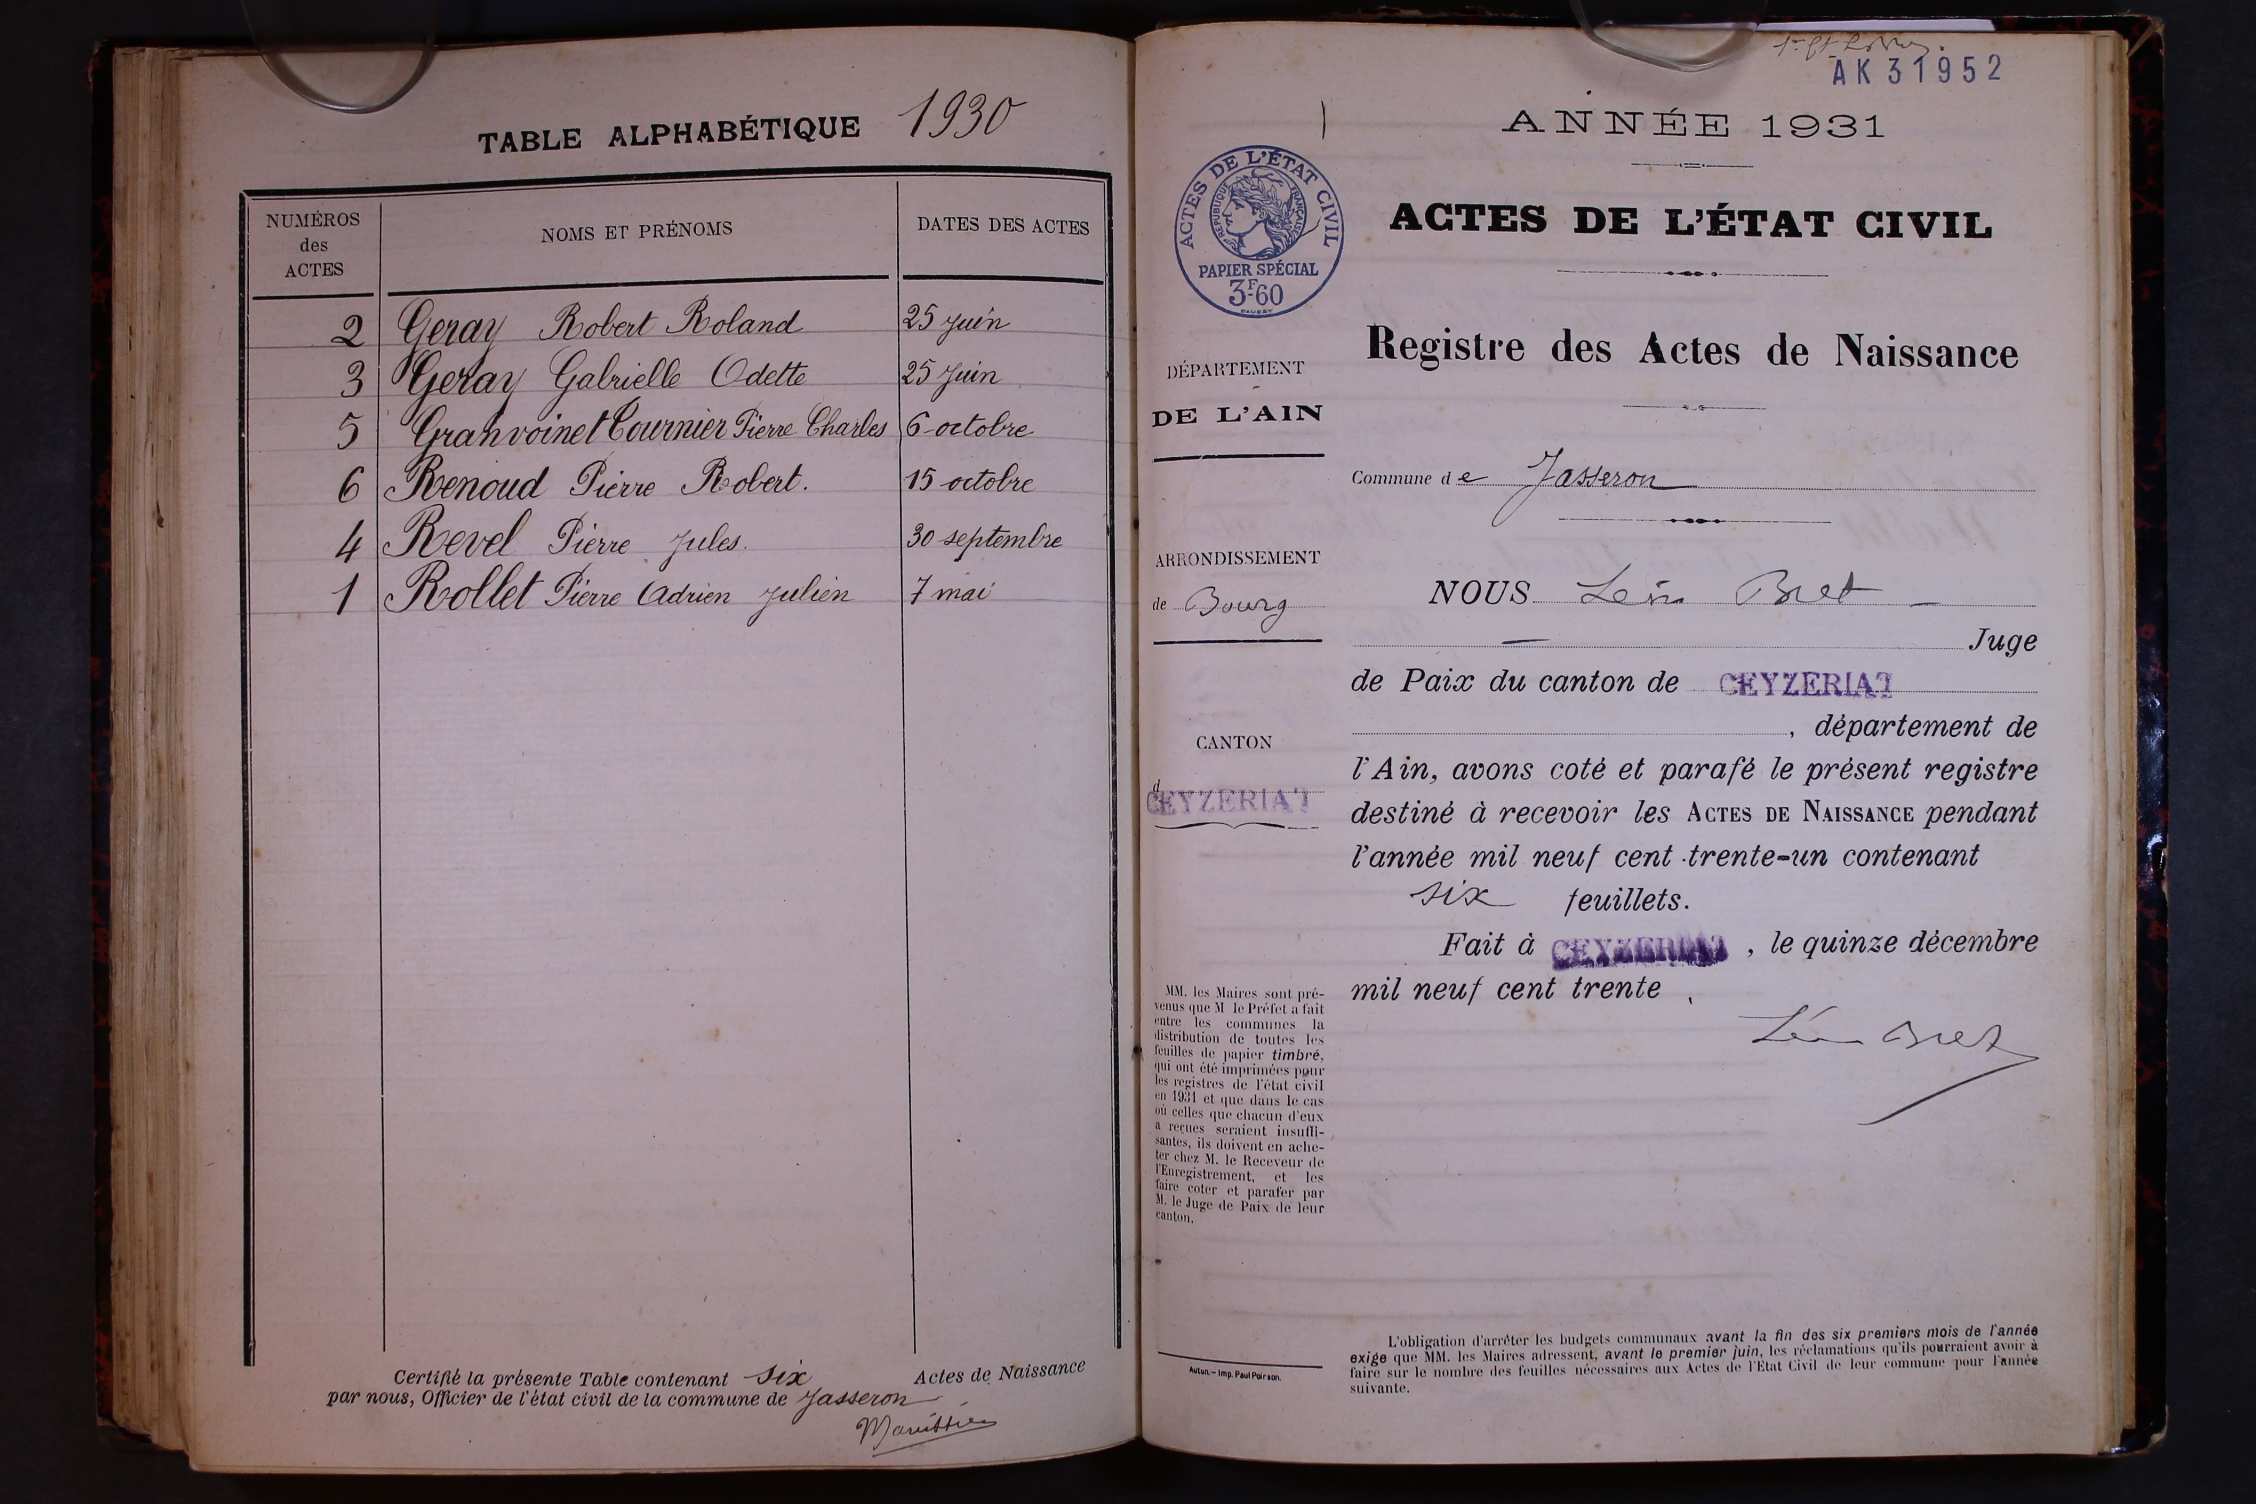 TABLE ALPHABÉTIQUE 1930
NUMÉROS
des
ACTES
NOMS ET PRÉNOMS
DATES DES ACTES
2 Geray Robert Roland 25 juin
3 Geray Gabrielle Odette 25 juin
5 Granvoinet Tournier Pierre Charles 6 octobre
6 Renoud Pierre Robert. 15 octobre
4 Revel Pierre Jules. 30 septembre
1 Rollet Pierre Adrien Julien 7 mai
Certifié la présente Table contenant six Actes de Naissance
par nous, Officier de l'état civil de la commune de Jasseron
AK31952
ANNÉE 1931
ACTES DE L'ÉTAT CIVIL
RÉPUBLIQUE FRANÇAISE
PAPIER SPÉCIAL
3F.60
ACTES DE L'ÉTAT CIVIL
Registre des Actes de Naissance
DÉPARTEMENT
DE L'AIN
Commune de Jasseron
ARRONDISSEMENT
de Bourg
NOUS Léon Bret
Juge
de Paix du canton de CEYZERIAT
, département de
CANTON
d
CEYZERIAT
l'Ain, avons coté et parafé le présent registre
destiné à recevoir les ACTES DE NAISSANCE pendant
l'année mil neuf cent trente-un contenant
six feuillets.
Fait à CEYZERIAT, le quinze décembre
mil neuf cent trente
Léon Bret
MM. les Maires sont pré-
venus que M le Préfet a fait
entre les communes la
distribution de toutes les
feuilles de papier timbré,
qui ont été imprimées pour
les registres de l'état civil
en 1931 et que dans le cas
où celles que chacun d'eux
a reçues seraient insuffi-
santes, ils doivent en ache-
ter chez M. le Receveur de
l'Enregistrement, et les
faire coter et parafer par
M. le Juge de Paix de leur
canton.
Autun. – Imp. Paul Poirson.
L'obligation d'arrêter les budgets communaux avant la fin des six premiers mois de l'année
exige que MM. les Maires adressent, avant le premier juin, les réclamations qu'ils pourraient avoir à
faire sur le nombre des feuilles nécessaires aux Actes de l'Etat Civil de leur commune pour l'année
suivante.